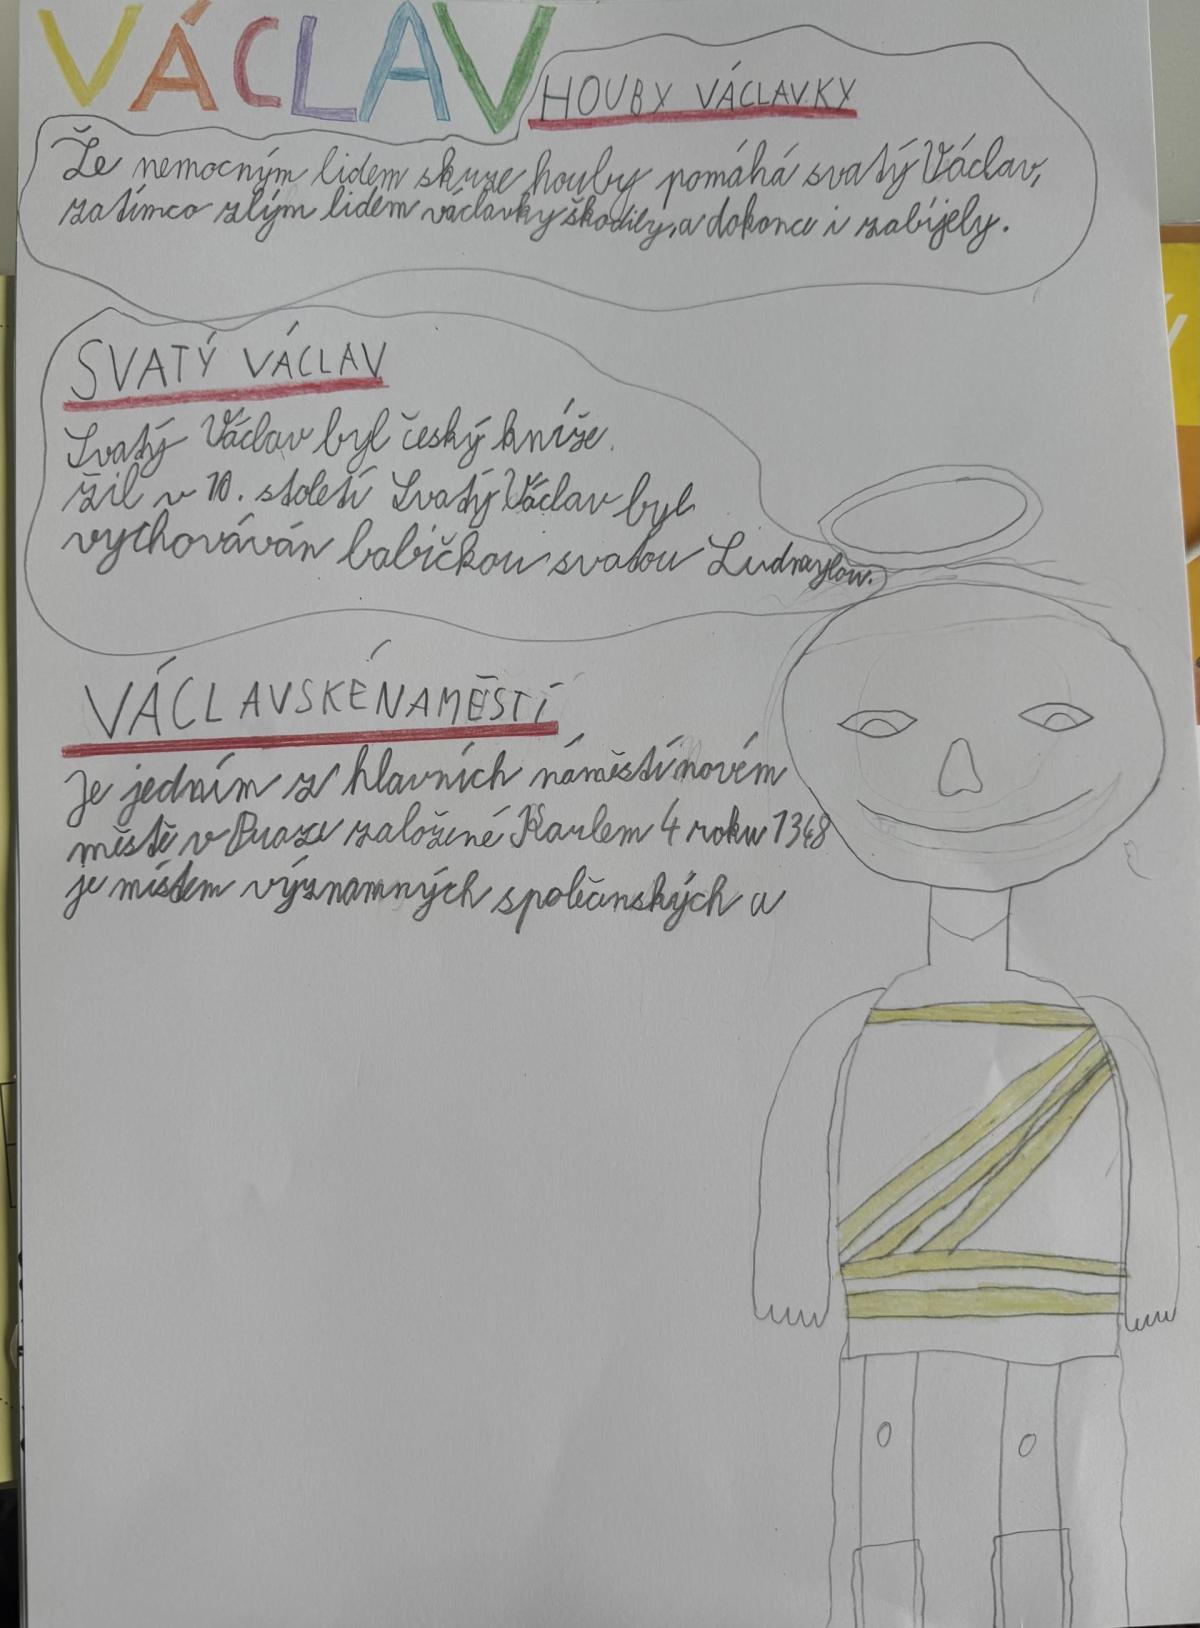 VÁCLAV
HOUBY VÁCLAVKY
Že nemocným lidem skrze houby pomáhá svatý Václav,
zatímco zlým lidem václavky škodily, a dokonce i zabíjely.
SVATÝ VÁCLAV
Svatý Václav byl český kníže.
žil v 10. století Svatý Václav byl
vychováván babičkou svatou Ludmylou.
VÁCLAVSKÉNAMĚSTÍ
Je jedním z hlavních náměstí novém
městě v Praze založené Karlem 4 roku 1348
je místem významných společenských a